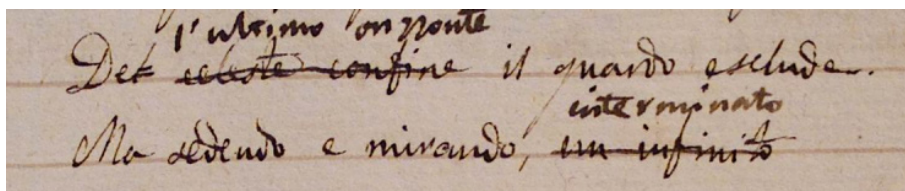 l'ultimo orizzonte
Del celeste confine il guardo esclude.
interminato
Ma sedendo e mirando, un infinito